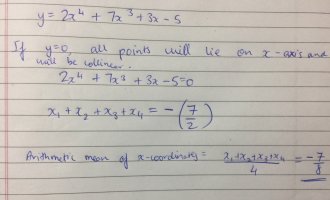 y = 2x⁴ + 7x³ + 3x - 5
If y=0, all points will lie on x-axis and
will be collinear.
2x⁴ + 7x³ + 3x - 5 = 0
x₁ + x₂ + x₃ + x₄ = - (7/2)
Arithmetic mean of x-coordinates = (x₁+x₂+x₃+x₄)/4 = -7/8